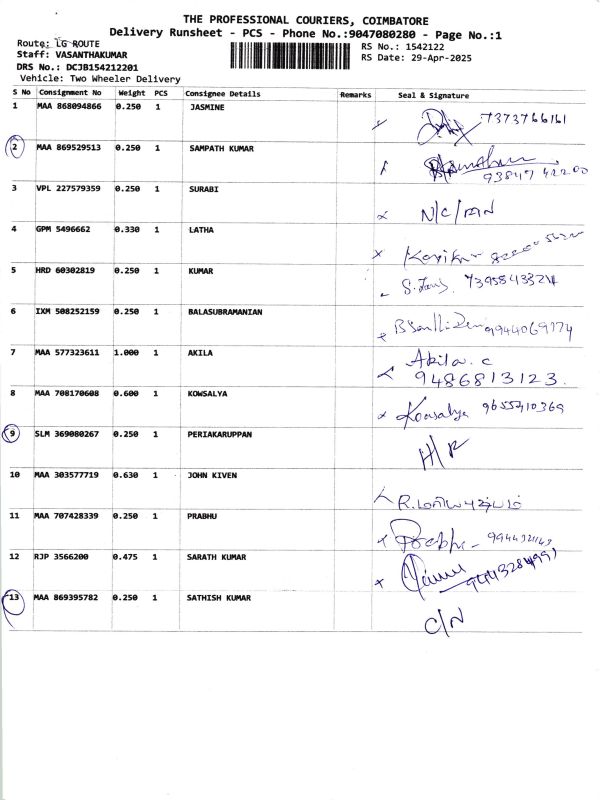 THE PROFESSIONAL COURIERS, COIMBATORE
Delivery Runsheet - PCS - Phone No.:9047080280 - Page No.:1
Route: LG ROUTE
Staff: VASANTHAKUMAR
DRS No.: DCJB154212201
Vehicle: Two Wheeler Delivery
RS No.: 1542122
RS Date: 29-Apr-2025
S No Consignment No Weight PCS Consignee Details Remarks Seal & Signature
1 MAA 868094866 0.250 1 JASMINE 7373766161
2 MAA 869529513 0.250 1 SAMPATH KUMAR 93847 42200
3 VPL 227579359 0.250 1 SURABI N/C/
4 GPM 5496662 0.330 1 LATHA
5 HRD 60302819 0.250 1 KUMAR
6 IXM 508252159 0.250 1 BALASUBRAMANIAN 9944069774
7 MAA 577323611 1.000 1 AKILA Akila. c
9486813123.
8 MAA 708170608 0.600 1 KOWSALYA Kowsalya 9655410369
9 SLM 369080267 0.250 1 PERIAKARUPPAN
10 MAA 303577719 0.630 1 JOHN KIVEN
11 MAA 707428339 0.250 1 PRABHU
12 RJP 3566200 0.475 1 SARATH KUMAR
13 MAA 869395782 0.250 1 SATHISH KUMAR C/N